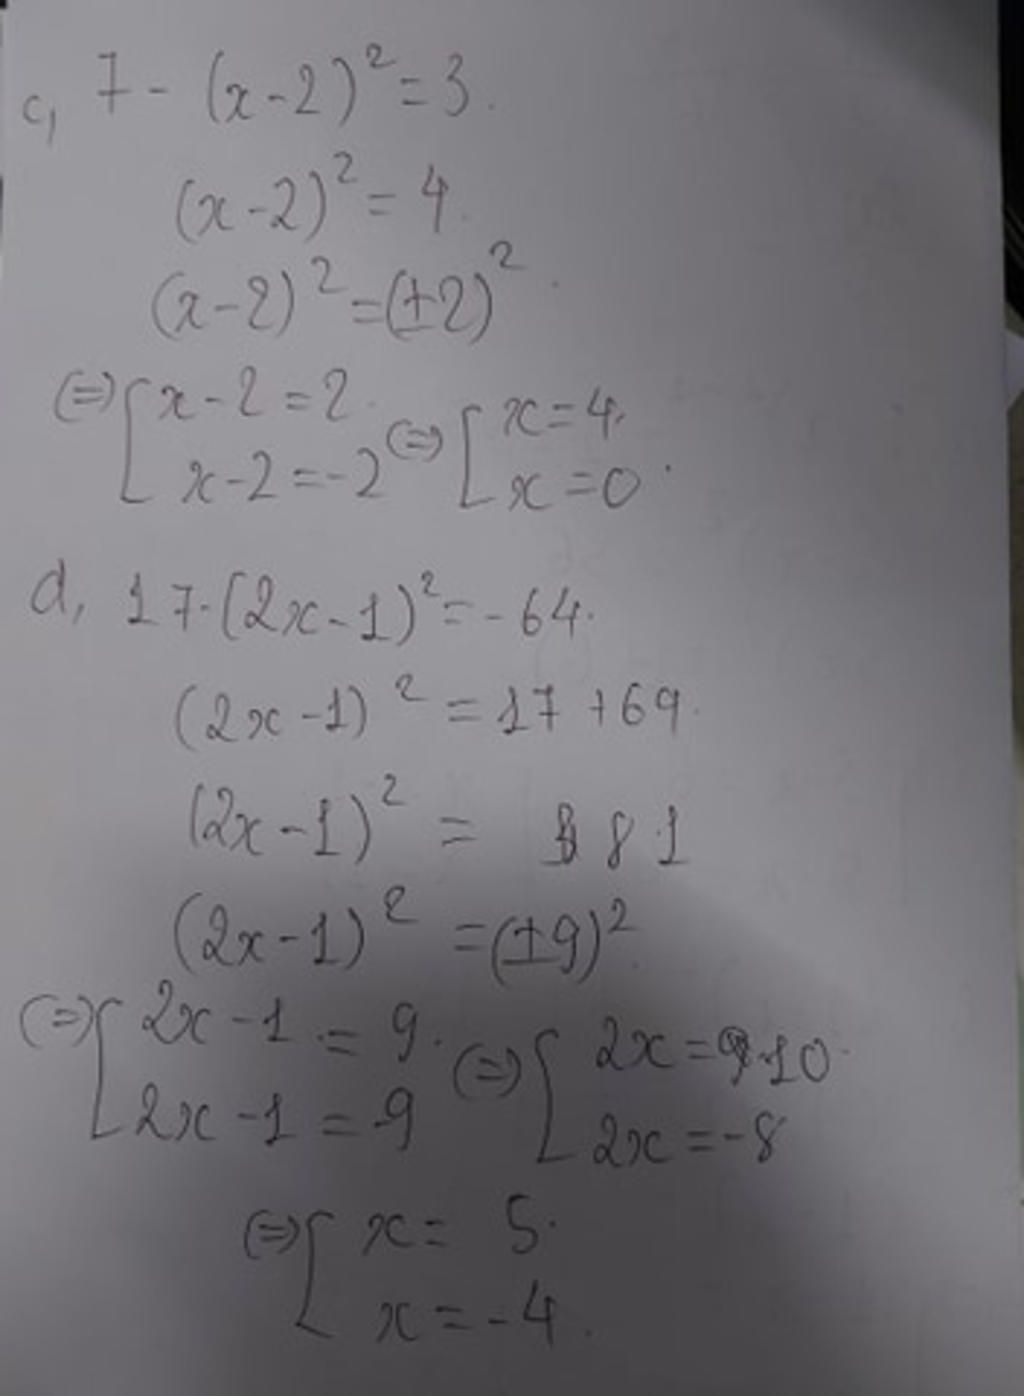 c, 7 - (x-2)² = 3.
(x-2)² = 4.
(x-2)² = (±2)²
(=) [ x-2 = 2. (=) [ x = 4.
x-2 = -2 x = 0.
d, 17-(2x-1)² = -64.
(2x-1)² = 17 +69.
(2x-1)² = 81
(2x-1)² = (±9)²
(=) [ 2x-1 = 9. (=) [ 2x = 10.
2x-1 = -9 2x = -8
(=) [ x = 5.
x = -4.